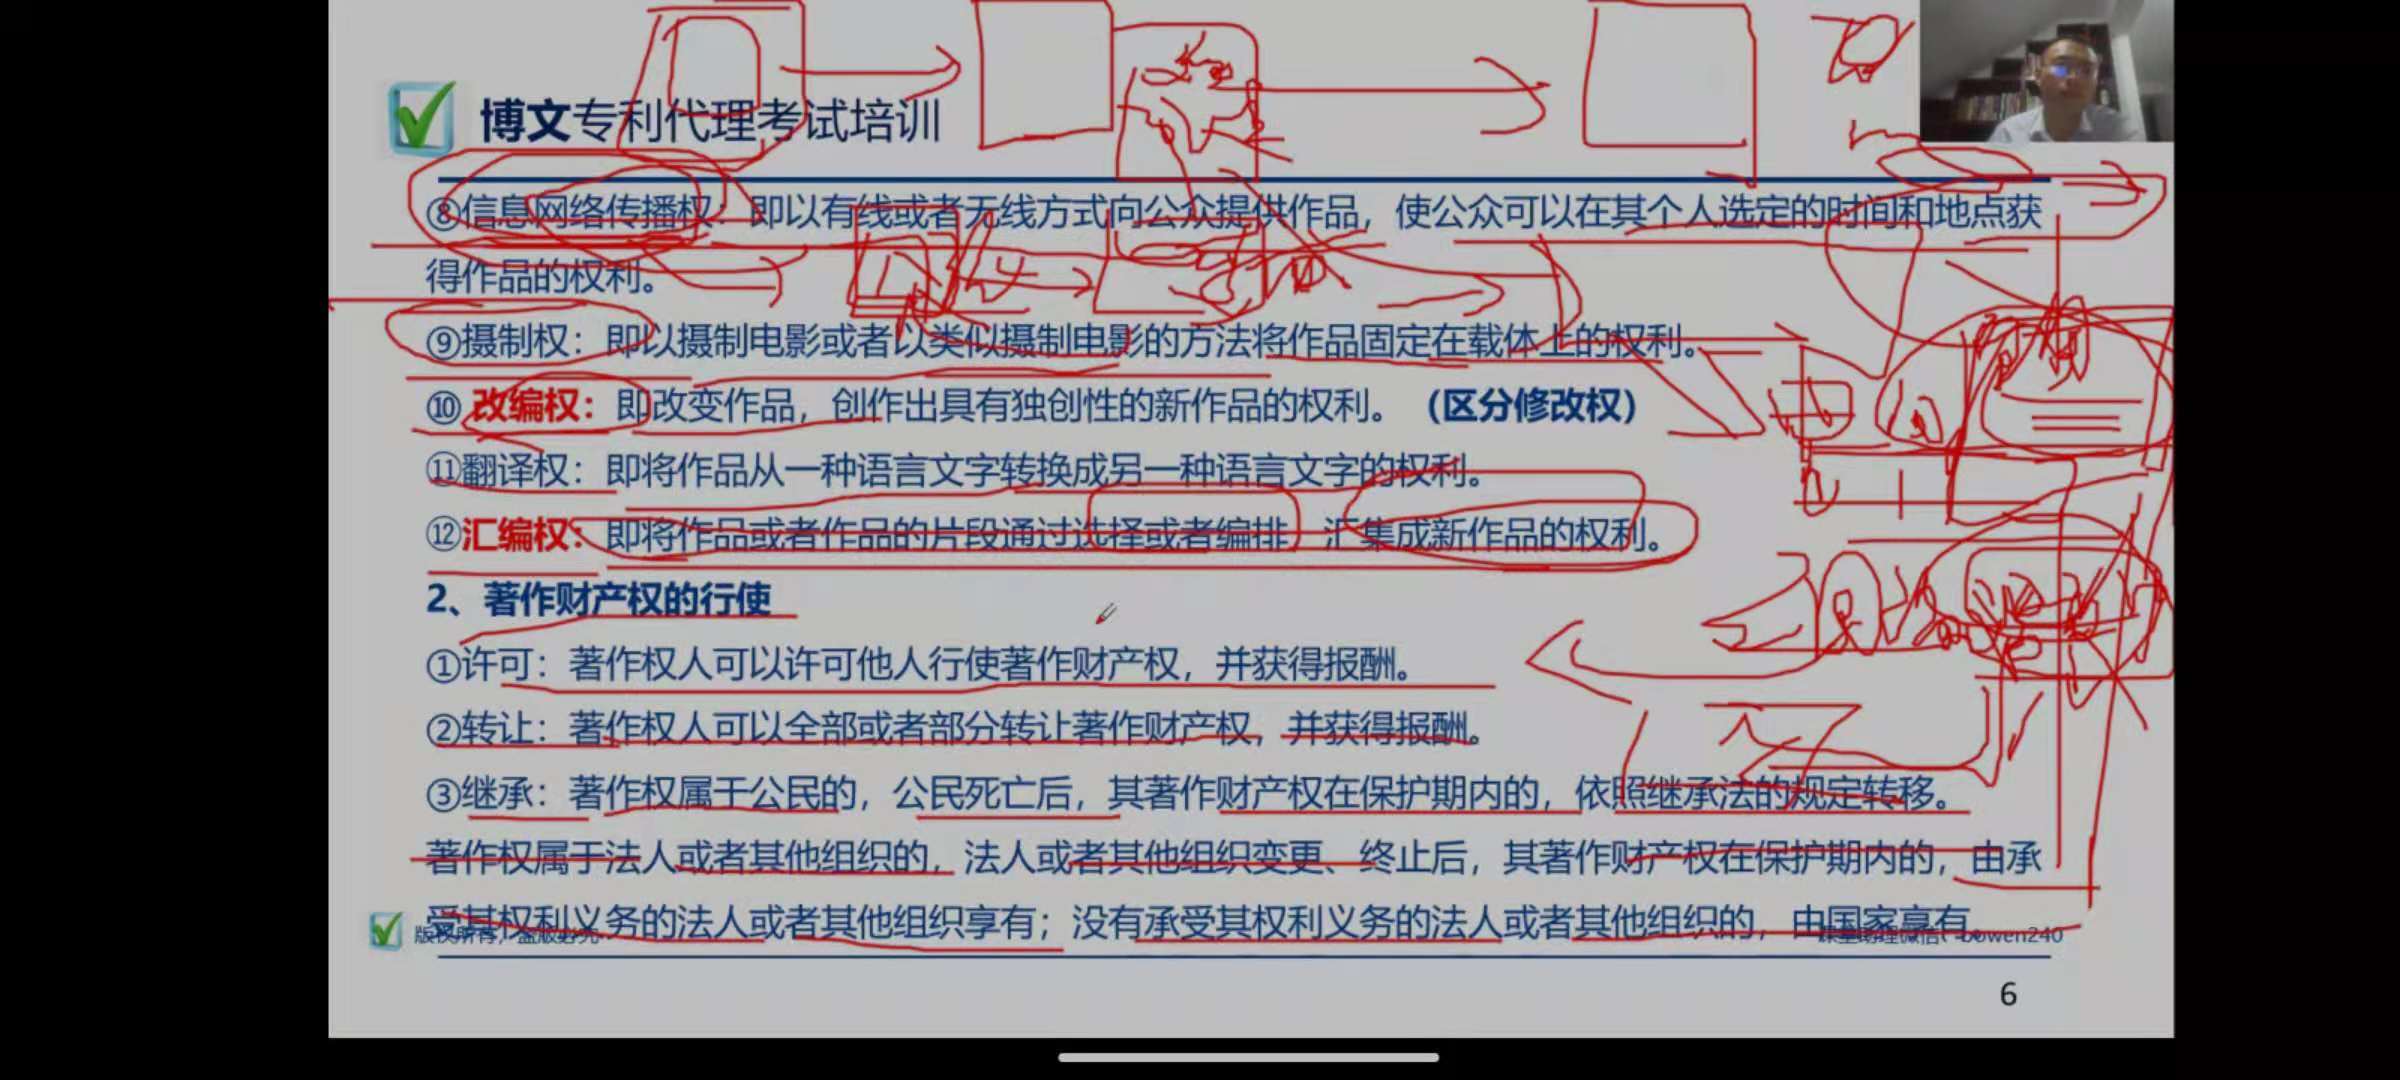 博文专利代理考试培训
⑧信息网络传播权：即以有线或者无线方式向公众提供作品，使公众可以在其个人选定的时间和地点获
得作品的权利。
⑨摄制权：即以摄制电影或者以类似摄制电影的方法将作品固定在载体上的权利。
⑩改编权：即改变作品，创作出具有独创性的新作品的权利。（区分修改权）
⑪翻译权：即将作品从一种语言文字转换成另一种语言文字的权利。
⑫汇编权：即将作品或者作品的片段通过选择或者编排，汇集成新作品的权利。
2、著作财产权的行使
①许可：著作权人可以许可他人行使著作财产权，并获得报酬。
②转让：著作权人可以全部或者部分转让著作财产权，并获得报酬。
③继承：著作权属于公民的，公民死亡后，其著作财产权在保护期内的，依照继承法的规定转移。
著作权属于法人或者其他组织的，法人或者其他组织变更、终止后，其著作财产权在保护期内的，由承
受其权利义务的法人或者其他组织享有；没有承受其权利义务的法人或者其他组织的，由国家享有。
版权所有，盗版必究
课堂助理微信：bowen240
6